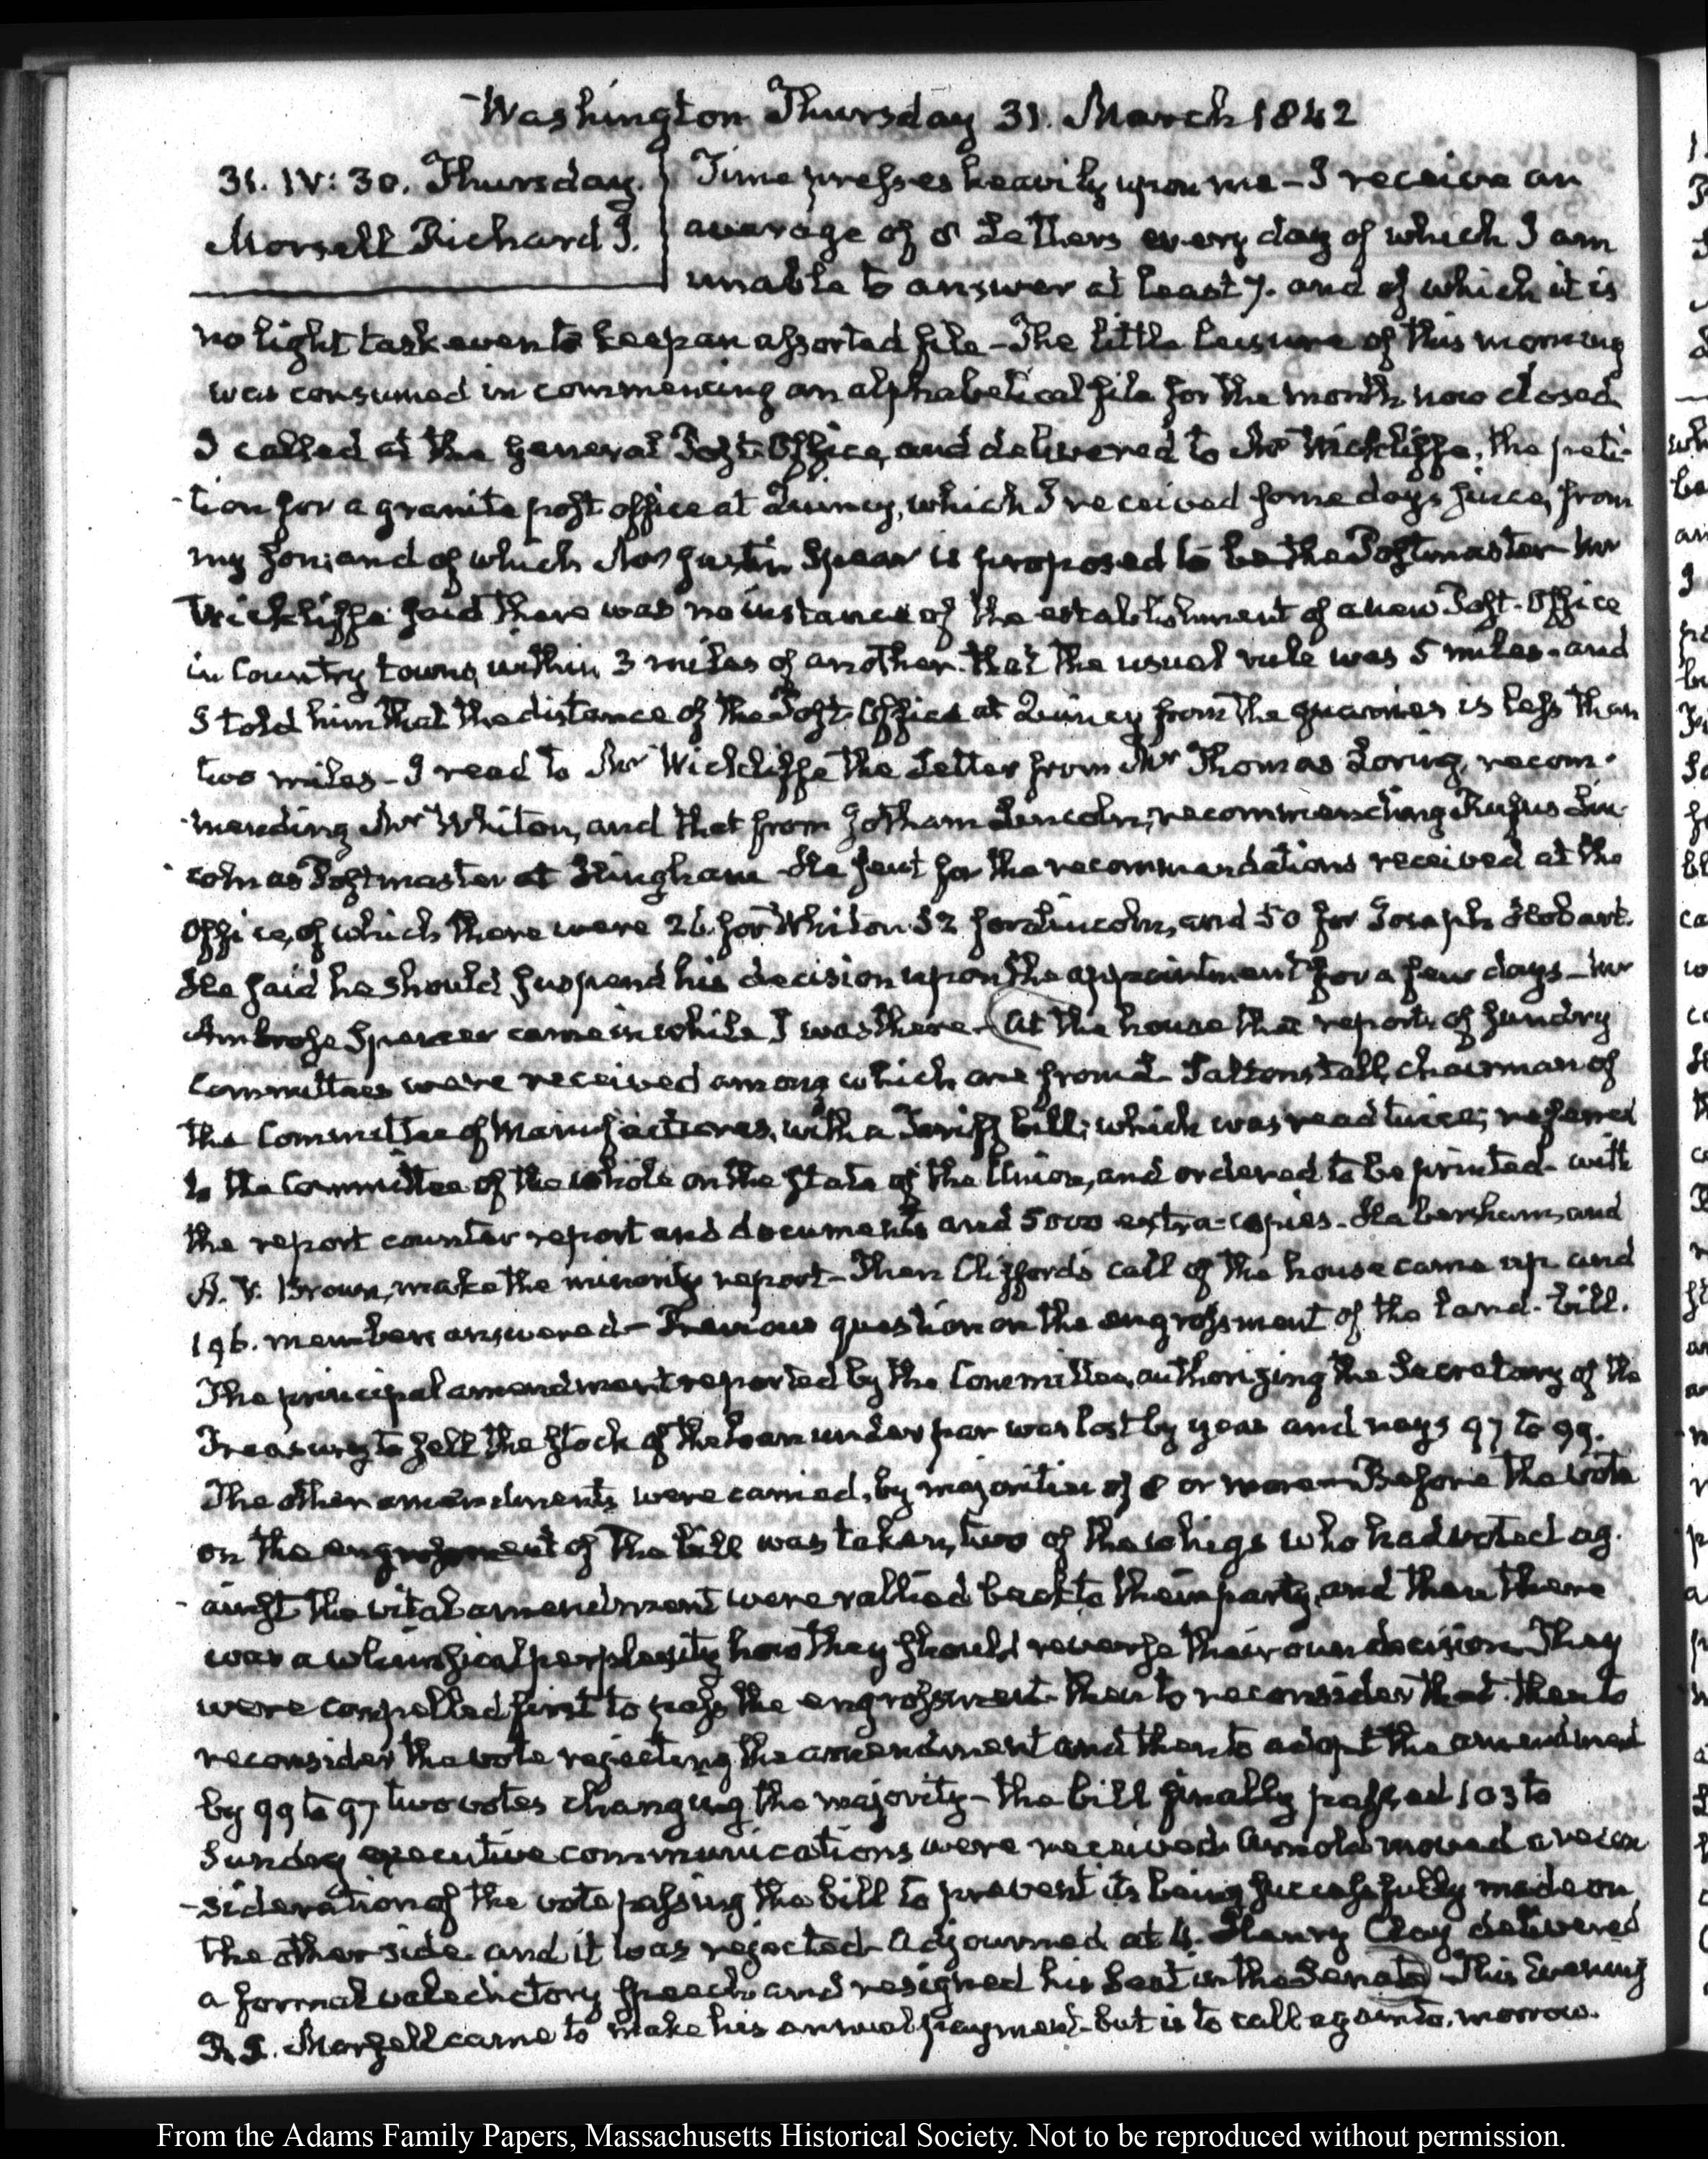 Washington Thursday 31. March 1842
31. IV: 30. Thursday.
Morsell Richard J.
Time presses heavily upon me - I receive an
average of 8 Letters every day of which I am
unable to answer at least 7. and of which it is
no light task even to keep an assorted file - The little leisure of this morning
was consumed in commencing an alphabetical file for the month now closed
I called at the general Post-Office, and delivered to Mr Wickliffe, the peti-
-tion for a granite post office at Quincy, which I received some days since, from
my son; and of which Mr Justin Spear is proposed to be the Postmaster - Mr
Wickliffe said there was no instance of the establishment of a new Post-Office
in Country towns, within 3 miles of another. that the usual rule was 5 miles - and
I told him that the distance of the Post-Office at Quincy from the quarries is less than
two miles - I read to Mr Wickliffe the Letter from Mr Thomas Loring, recom-
-mending Mr Whiton, and that from Jotham Lincoln, recommending Rufus Lin-
-coln as Postmaster at Hingham He sent for the recommendations received at the
Office, of which there were 26 for Whiton 52 for Lincoln, and 50 for Joseph Hobart.
He said he should suspend his decision upon the appointment for a few days - Mr
Ambrose Spencer came in while I was there - At the house the reports of sundry
Committees were received among which one from L. Saltonstall, chairman of
the Committee of Manufactures, with a Tariff bill; which was read twice; referred
to the Committee of the whole on the state of the Union, and ordered to be printed - with
the report counter report and documents and 5000 extra-copies - Habersham, and
A. V. Brown, make the minority report - Then Clifford's call of the house came up and
196. members answered - Previous question on the engrossment of the land-bill.
The principal amendment reported by the Committee, authorizing the Secretary of the
Treasury to sell the stock of the loan under par was lost by yeas and nays 97 to 99.
The other amendments were carried, by majorities of 8 or more - Before the vote
on the engrossment of the bill was taken, two of the whigs who had voted ag-
-ainst the vital amendment were rallied back to their party, and then there
was a whimsical perplexity how they should reverse their own decision. They
were compelled first to pass the engrossment - then to reconsider that. then to
reconsider the vote rejecting the amendment and then to adopt the amendment
by 99 to 97 two votes changing the majority - the bill finally passed 103 to
Sundry executive communications were received. Arnold moved a recon
-sideration of the vote passing the bill to prevent its being successfully made on
the other side. and it was rejected - Adjourned at 4. Henry Clay delivered
a formal valedictory speech and resigned his Seat in the Senate - This Evening
R. J. Morsell came to make his annual payment - but is to call again to-morrow.
From the Adams Family Papers, Massachusetts Historical Society. Not to be reproduced without permission.